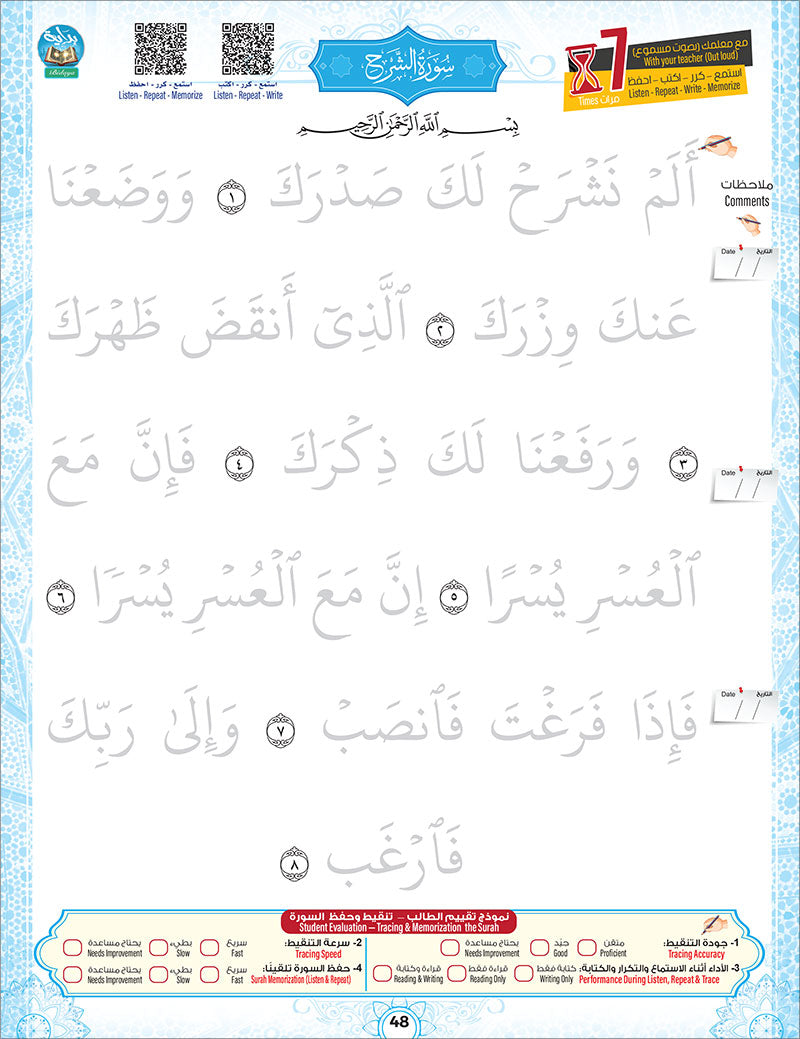 بداية
iBidaya
استمع - كرر - احفظ
Listen - Repeat - Memorize
استمع - كرر - اكتب
Listen - Repeat - Write
سورة الشرح
7
مرات Times
مع معلمك (بصوت مسموع)
With your teacher (Out loud)
استمع - كرر - اكتب - احفظ
Listen - Repeat - Write - Memorize
بِسْمِ ٱللَّهِ ٱلرَّحْمَٰنِ ٱلرَّحِيمِ
ملاحظات
Comments
أَلَمْ نَشْرَحْ لَكَ صَدْرَكَ ١ وَوَضَعْنَا
Date / / التاريخ
عَنكَ وِزْرَكَ ٢ ٱلَّذِىٓ أَنقَضَ ظَهْرَكَ
٣ وَرَفَعْنَا لَكَ ذِكْرَكَ ٤ فَإِنَّ مَعَ
Date / / التاريخ
ٱلْعُسْرِ يُسْرًا ٥ إِنَّ مَعَ ٱلْعُسْرِ يُسْرًا ٦
Date / / التاريخ
فَإِذَا فَرَغْتَ فَٱنصَبْ ٧ وَإِلَىٰ رَبِّكَ
فَٱرْغَب ٨
نموذج تقييم الطالب – تنقيط وحفظ السورة
Student Evaluation – Tracing & Memorization the Surah
1- جودة التنقيط: متقن جيّد يحتاج مساعدة
Tracing Accuracy Proficient Good Needs Improvement
2- سرعة التنقيط: سريع بطيء يحتاج مساعدة
Tracing Speed Fast Slow Needs Improvement
3- الأداء أثناء الاستماع والتكرار والكتابة: كتابة فقط قراءة فقط قراءة وكتابة
Performance During Listen, Repeat & Trace Writing Only Reading Only Reading & Writing
4- حفظ السورة تلقينًا: سريع بطيء يحتاج مساعدة
Surah Memorization (Listen & Repeat) Fast Slow Needs Improvement
48